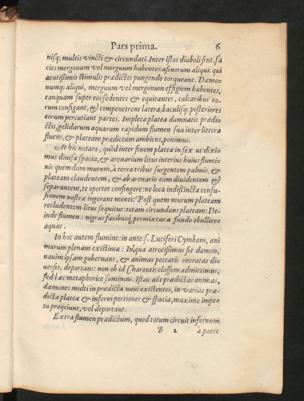 Pars prima. 6
nisq, multis vincti & circundati. Inter istos diaboli sunt, fa
cies mergonum vel mergorum habentes, asinorum aliqui: qui
acutissimis stimulis prædictos pungendo torqueant. Dæmo
numq; aliqui, mergonum vel mergorum effigiem habentes,
tanquam super eos sedentes & equitantes, calcaribus eo-
rum confligant, & compenetrent latera, baculisq; posteriores
eorum percutiant partes. Impleta platea damnatis prædi-
ctis, gelidarum aquarum rapidum flumen sua inter littora
fluere, & plateam prædictam ambiens, ponimus.
At hic notato, quòd inter finem platea in sex vt dixi-
mus diuisa spacia, & arenarium litus interius huius flumi
nis quemdam murum, à terra tribus surgentem palmis, &
plateam claudentem, & ab arenario eam diuidentem &
separantem, te oportet confingere: ne loca indistincta confu-
sionem nostra ingerant menti: Post quem murum plateam
recludentem litus sequitur: totam circundans plateam: De-
inde flumen: nigras facibusq; permixtas à fundo ebulliens
aquas.
In hoc autem flumine: in ante s. Luciferi Cymbam, ani
marum plenam existima: Inqua atrocissimus sit dæmon,
nauim ipsam gubernans, & animas peccatis oneratas di
uersis, deportans: non ob id Charontis classem admittimus,
sed hæc metaphorice sumimus. Istas aut prædictas animas,
dæmones multi in prædicta naui existentes, in varias præ-
dictæ plateæ & inferni portiones & spacia, maximo impe
tu proijciunt, vel deportant.
Extra flumen prædictum, quod totum circuit infernum
B 2 a parte